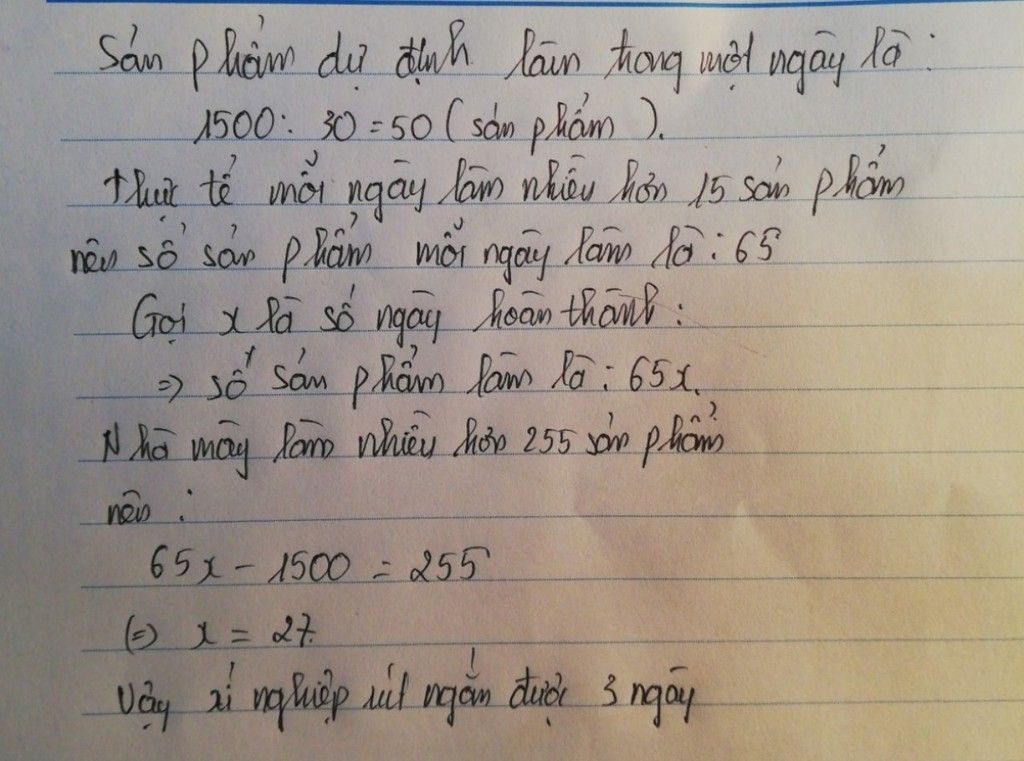 Sản phẩm dự định làm trong một ngày là :
1500 : 30 = 50 ( sản phẩm ).
Thực tế mỗi ngày làm nhiều hơn 15 sản phẩm
nên số sản phẩm mỗi ngày làm là : 65
Gọi x là số ngày hoàn thành :
=> số sản phẩm làm là : 65x.
Nhà máy làm nhiều hơn 255 sản phẩm
nên :
65x - 1500 = 255
(=) x = 27.
Vậy xí nghiệp rút ngắn được 3 ngày